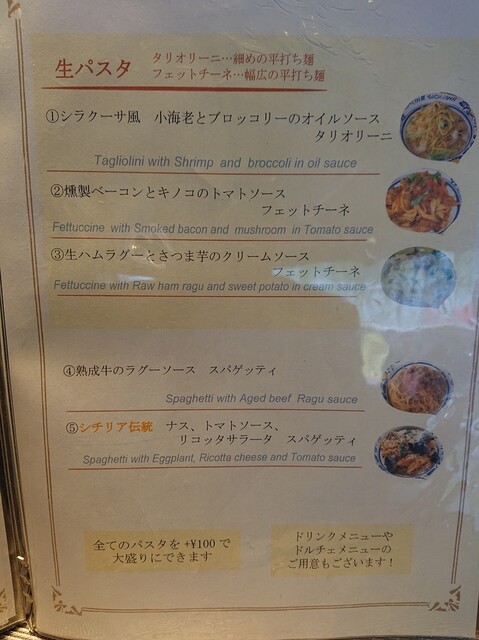 生パスタ
タリオリーニ…細めの平打ち麺
フェットチーネ…幅広の平打ち麺
①シラクーサ風 小海老とブロッコリーのオイルソース
タリオリーニ
Tagliolini with Shrimp and broccoli in oil sauce
②燻製ベーコンとキノコのトマトソース
フェットチーネ
Fettuccine with Smoked bacon and mushroom in Tomato sauce
③生ハムラグーとさつま芋のクリームソース
フェットチーネ
Fettuccine with Raw ham ragu and sweet potato in cream sauce
④熟成牛のラグーソース スパゲッティ
Spaghetti with Aged beef Ragu sauce
⑤シチリア伝統 ナス、トマトソース、
リコッタサラータ スパゲッティ
Spaghetti with Eggplant, Ricotta cheese and Tomato sauce
全てのパスタを+¥100で
大盛りにできます
ドリンクメニューや
ドルチェメニューの
ご用意もございます!